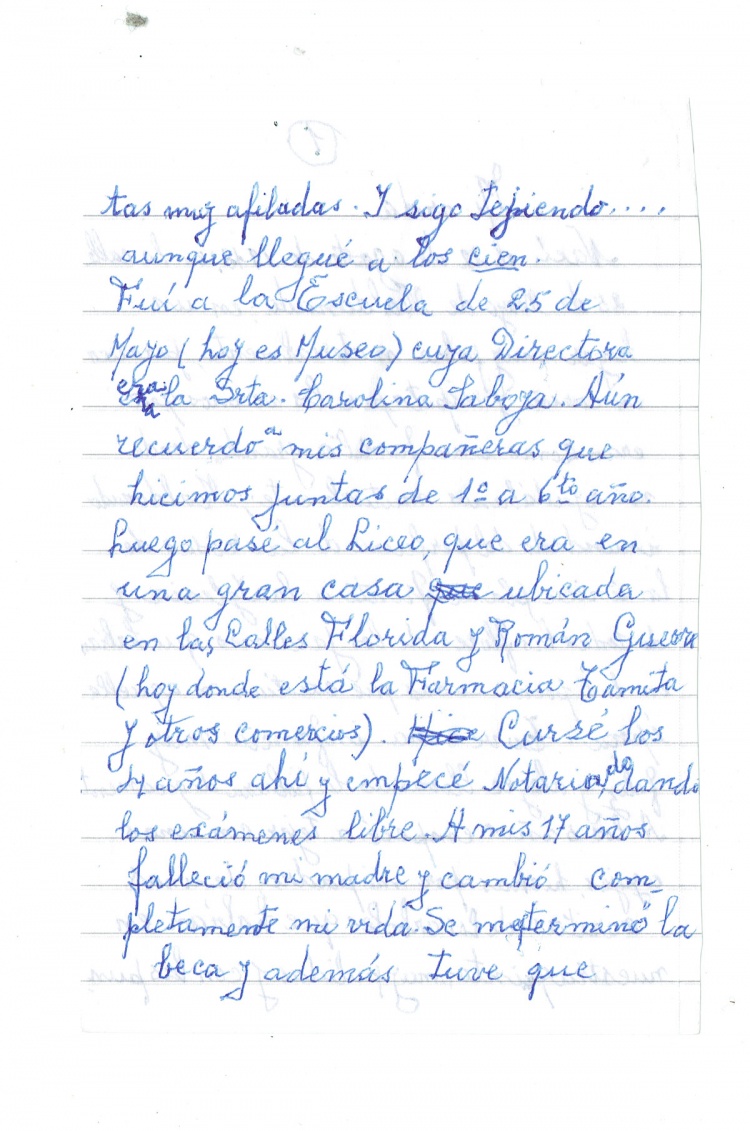 1
tas muy afiladas. Y sigo tejiendo....
aunque llegué a los cien.
Fuí a la Escuela de 25 de
Mayo (hoy es Museo) cuya Directora
era la Srta. Carolina Saboya. Aún
recuerdo a mis compañeras que
hicimos juntas de 1º a 6to año.
Luego pasé al Liceo, que era en
una gran casa que ubicada
en las Calles Florida y Román Guerra
(hoy donde está la Farmacia Camita
y otros comercios). Hice Cursé los
4 años ahí y empecé Notariado, dando
los exámenes libre. A mis 17 años
falleció mi madre y cambió com-
pletamente mi vida. Se me terminó la
beca y además tuve que